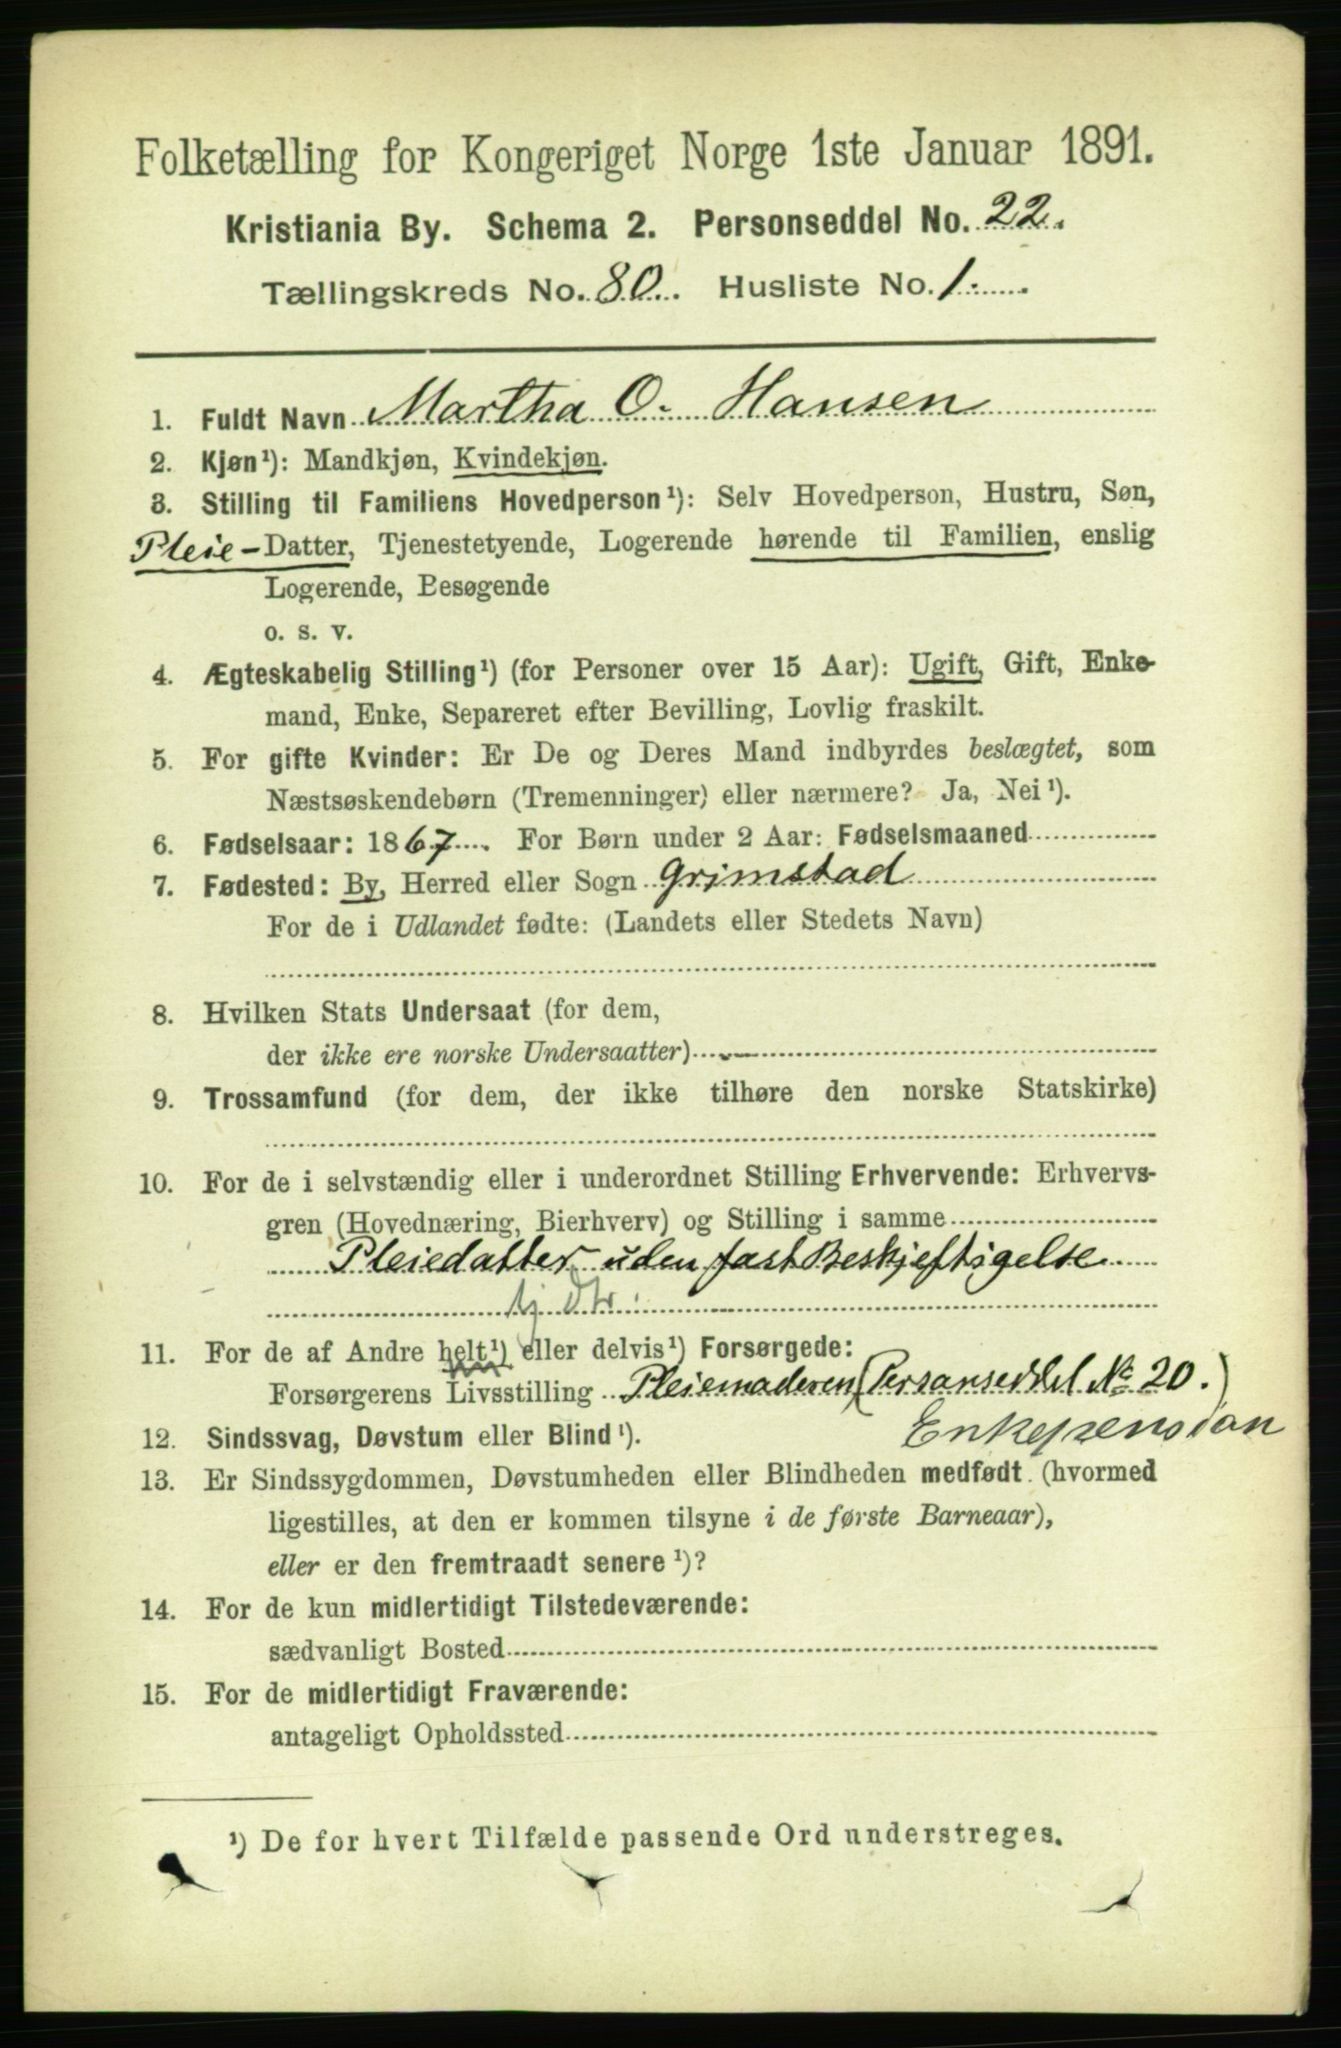 Folketælling for Kongeriget Norge 1ste Januar 1891.
Kristiania By. Schema 2. Personseddel No. 22.
Tællingskreds No. 80. Husliste No. 1.
1. Fuldt Navn Martha O. Hansen
2. Kjøn¹): Mandkjøn, Kvindekjøn.
3. Stilling til Familiens Hovedperson¹): Selv Hovedperson, Hustru, Søn,
Pleie-Datter, Tjenestetyende, Logerende hørende til Familien, enslig
Logerende, Besøgende
o. s. v.
4. Ægteskabelig Stilling¹) (for Personer over 15 Aar): Ugift, Gift, Enke-
mand, Enke, Separeret efter Bevilling, Lovlig fraskilt.
5. For gifte Kvinder: Er De og Deres Mand indbyrdes beslægtet, som
Næstsøskendebørn (Tremenninger) eller nærmere? Ja, Nei¹).
6. Fødselsaar: 1867. For Børn under 2 Aar: Fødselsmaaned
7. Fødested: By, Herred eller Sogn Grimstad
For de i Udlandet fødte: (Landets eller Stedets Navn)
8. Hvilken Stats Undersaat (for dem,
der ikke ere norske Undersaatter)
9. Trossamfund (for dem, der ikke tilhøre den norske Statskirke)
10. For de i selvstændig eller i underordnet Stilling Erhvervende: Erhvervs-
gren (Hovednæring, Bierhverv) og Stilling i samme
Pleiedatter uden fast Beskjeftigelse
11. For de af Andre helt¹) eller delvis¹) Forsørgede:
Forsørgerens Livsstilling Pleiemoderen (Personseddel No 20.)
Enkepension
12. Sindssvag, Døvstum eller Blind¹).
13. Er Sindssygdommen, Døvstumheden eller Blindheden medfødt (hvormed
ligestilles, at den er kommen tilsyne i de første Barneaar),
eller er den fremtraadt senere¹)?
14. For de kun midlertidigt Tilstedeværende:
sædvanligt Bosted
15. For de midlertidigt Fraværende:
antageligt Opholdssted
¹) De for hvert Tilfælde passende Ord understreges.